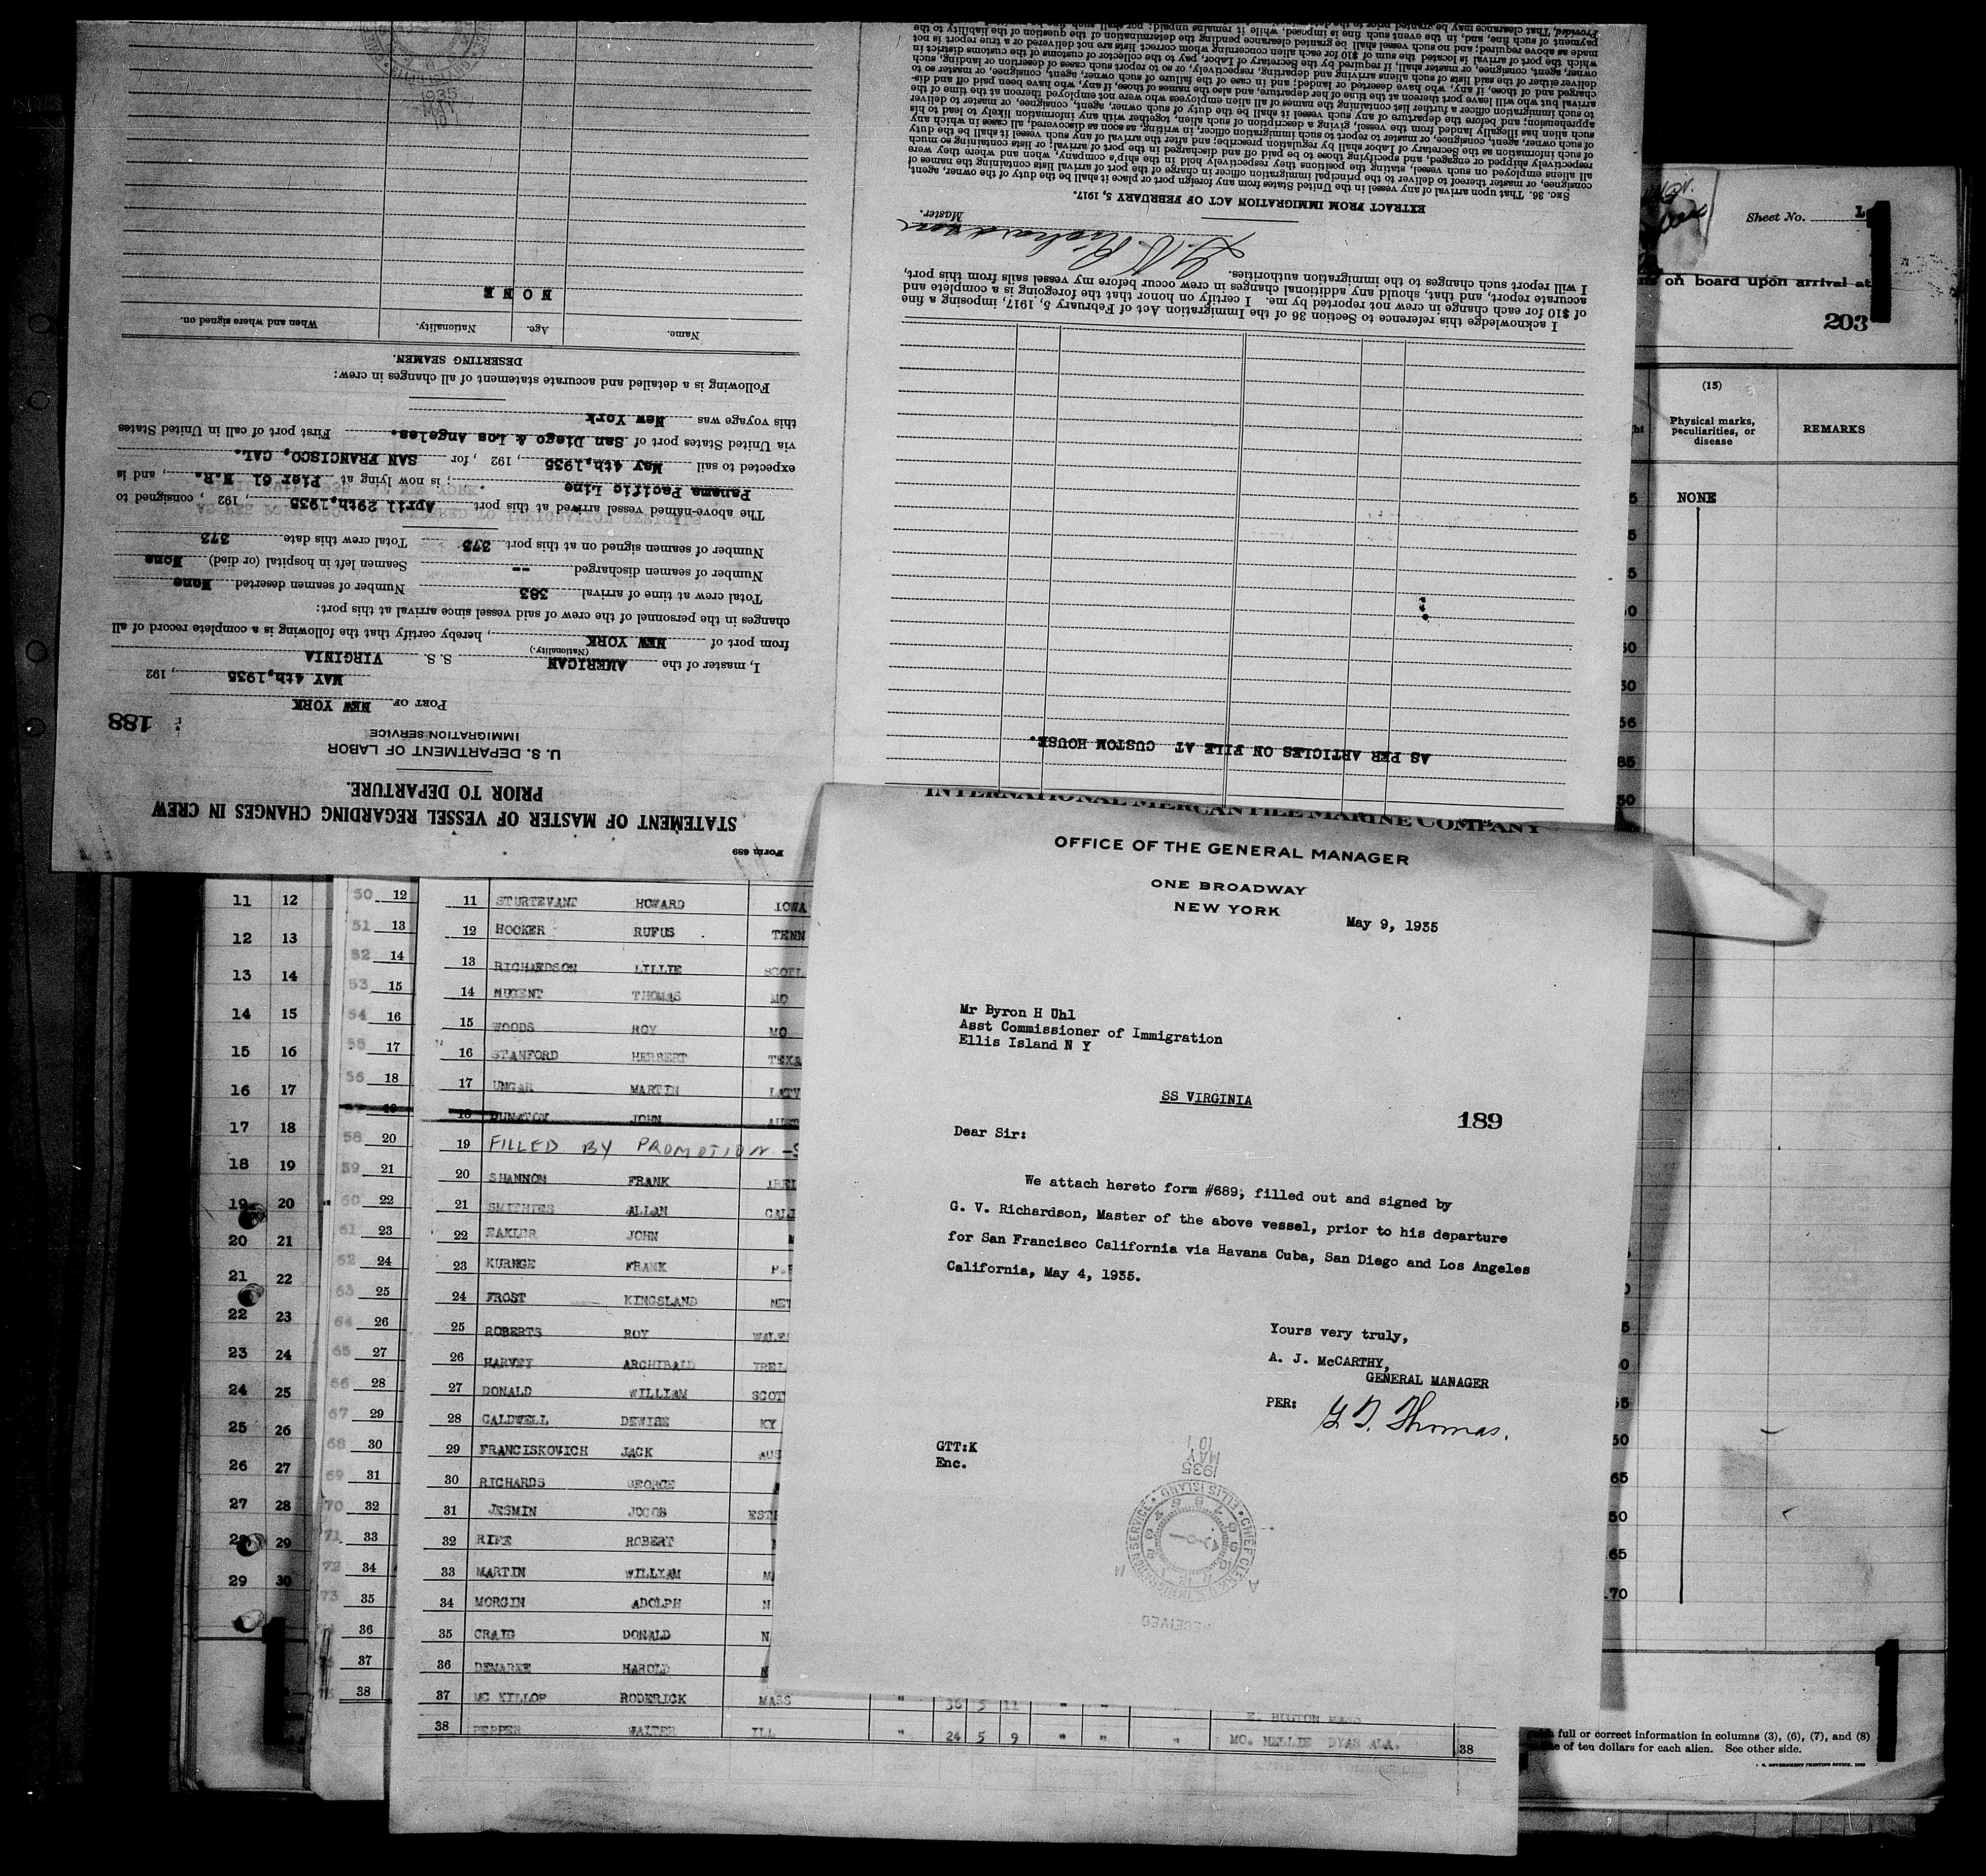 Form 689
STATEMENT OF MASTER OF VESSEL REGARDING CHANGES IN CREW
PRIOR TO DEPARTURE.
U. S. DEPARTMENT OF LABOR
IMMIGRATION SERVICE
188
PORT OF NEW YORK
MAY 4th,1935, 192
I, master of the AMERICAN S. S. VIRGINIA
(Nationality.)
from port of NEW YORK, hereby certify that the following is a complete record of all
changes in the personnel of the crew of said vessel since arrival at this port:
Total crew at time of arrival 383 Number of seamen deserted None
Number of seamen discharged -- Seamen left in hospital (or died) None
Number of seamen signed on at this port 373 Total crew this date 373
The above-named vessel arrived at this port April 29th,1935, 192 , consigned to
Panama Pacific Line; is now lying at Pier 61 N.R., and is
expected to sail May 4th,1935, 192 , for SAN FRANCISCO, CAL.
via United States port of San Diego & Los Angeles. First port of call in United States
this voyage was New York
Following is a detailed and accurate statement of all changes in crew:
DESERTING SEAMEN.
Name. Age. Nationality. When and where signed on.
NONE
1935
MAY
10
AS PER ARTICLES ON FILE AT CUSTOM HOUSE.
I acknowledge this reference to Section 36 of the Immigration Act of February 5, 1917, imposing a fine
of $10 for each change in crew not reported by me. I certify on honor that the foregoing is a complete and
accurate report, and that, should any additional changes in crew occur before my vessel sails from this port,
I will report such changes to the immigration authorities.
G. V. Richardson
Master.
EXTRACT FROM IMMIGRATION ACT OF FEBRUARY 5, 1917.
SEC. 36. That upon arrival of any vessel in the United States from any foreign port or place it shall be the duty of the owner, agent,
consignee, or master thereof to deliver to the principal immigration officer in charge of the port of arrival lists containing the names of
all aliens employed on such vessel, stating the positions they respectively hold in the ship's company, when and where they were
respectively shipped or engaged, and specifying those to be paid off and discharged in the port of arrival; or lists containing so much
of such information as the Secretary of Labor shall by regulation prescribe; and after the arrival of any such vessel it shall be the duty
of such owner, agent, consignee, or master to report to such immigration officer, in writing, as soon as discovered, all cases in which any
such alien has illegally landed from the vessel, giving a description of such alien, together with any information likely to lead to his
apprehension; and before the departure of any such vessel it shall be the duty of such owner, agent, consignee, or master to deliver
to such immigration officer a further list containing the names of all alien employees who were not employed thereon at the time of the
arrival but who will leave port thereon at the time of her departure, and also the names of those, if any, who have been paid off and dis-
charged and of those, if any, who have deserted or landed; and in case of the failure of such owner, agent, consignee, or master so to
deliver either of the said lists of such aliens arriving and departing, respectively, or so to report such cases of desertion or landing, such
owner, agent, consignee, or master shall, if required by the Secretary of Labor, pay to the collector of customs of the customs district in
which the port of arrival is located the sum of $10 for each alien concerning whom correct lists are not delivered or a true report is not
made as above required; and no such vessel shall be granted clearance pending the determination of the question of the liability to the
payment of such fine, and, in the event such fine is imposed, while it remains unpaid; nor shall such fine be
Provided, That clearance may be granted prior to the
Sheet No. 1
on board upon arrival at
203
(15)
Physical marks,
peculiarities, or
disease
REMARKS
NONE
INTERNATIONAL MERCANTILE MARINE COMPANY
OFFICE OF THE GENERAL MANAGER
ONE BROADWAY
NEW YORK
May 9, 1935
Mr Byron H Uhl
Asst Commissioner of Immigration
Ellis Island N Y
SS VIRGINIA
189
Dear Sir:
We attach hereto form #689, filled out and signed by
G. V. Richardson, Master of the above vessel, prior to his departure
for San Francisco California via Havana Cuba, San Diego and Los Angeles
California, May 4, 1935.
Yours very truly,
A. J. McCARTHY,
GENERAL MANAGER
PER: G T Thomas.
GTT:K
Enc.
1935
MAY
10
IMMIGRATION SERVICE • CHIEF CLERK • ELLIS ISLAND •
RECEIVED
11 STURTEVANT HOWARD IOWA
12 HOOKER RUFUS TENN
13 RICHARDSON LILLIE SCOTL
14 NUGENT THOMAS MO
15 WOODS ROY MO
16 STANFORD HERBERT TEXA
17 UNGAR MARTIN LATV
18 JOHN AUST
19 FILLED BY PROMOTION
20 SHANNON FRANK IREL
21 SMITHIES ALLAN CALI
22 EAKLER JOHN
23 KURNGE FRANK
24 FROST KINGSLAND
25 ROBERTS ROY WALE
26 HARVEY ARCHIBALD IREL
27 DONALD WILLIAM SCOT
28 CALDWELL DEWISE KY
29 FRANCISKOVICH JACK AUS
30 RICHARDS GEORGE
31 JESMIN JOCOB EST
32 RIFE ROBERT
33 MARTIN WILLIAM
34 MORGIN ADOLPH N
35 CRAIG DONALD N
36 DEMARKE HAROLD N
37 MC KILLOP RODERICK MASS " 36 5 11 " " E. BOSTON MASS
38 PEPPER WALTER ILL " 24 5 9 " " " MO. NELLIE DYAS ALA. 38
full or correct information in columns (3), (6), (7), and (8)
of ten dollars for each alien. See other side.